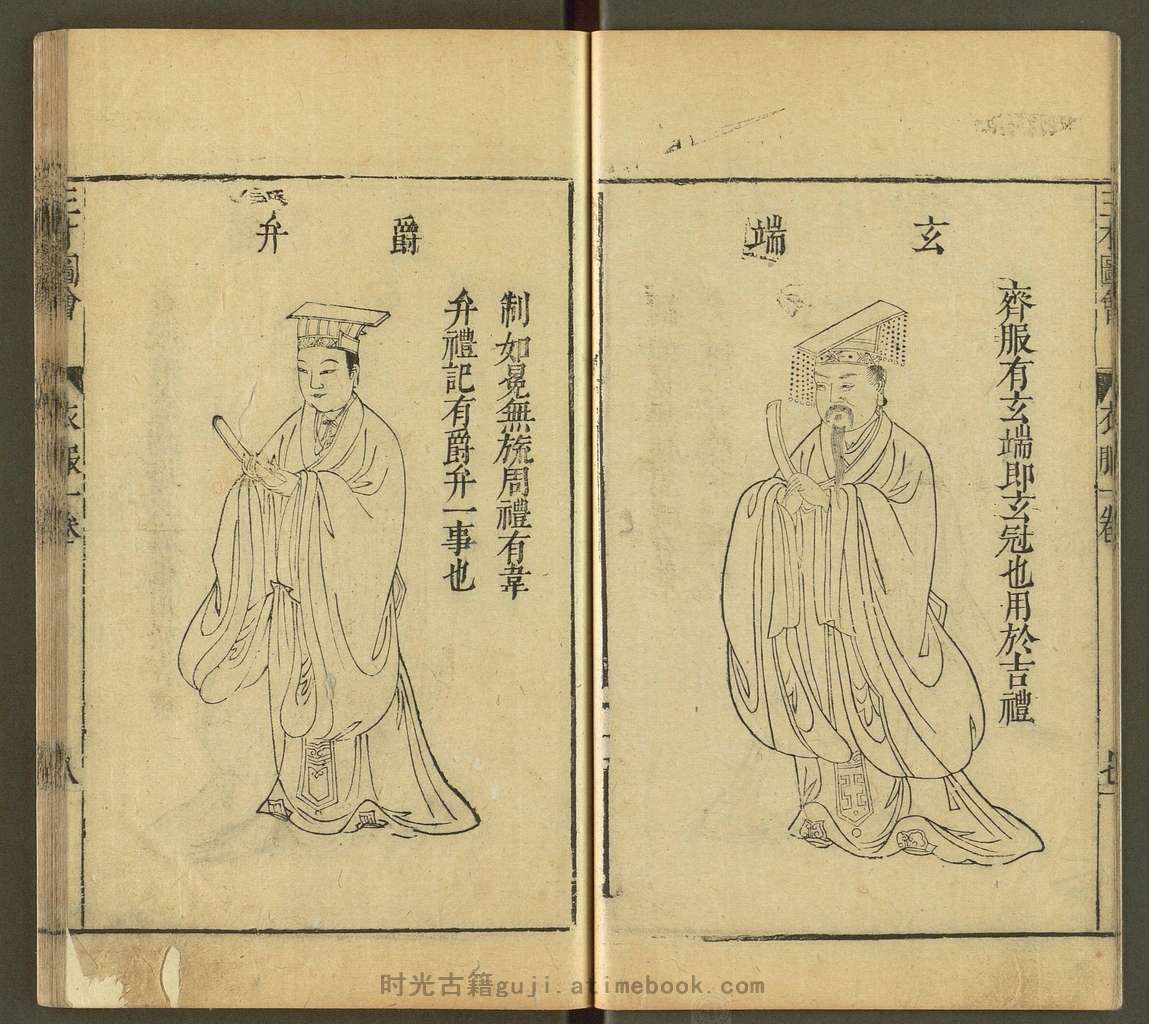 玄端
齊服有玄端即玄冠也用於吉禮
三才圖會
衣服一卷
七
爵弁
制如冕無旒周禮有韋
弁禮記有爵弁一事也
三才圖會
衣服一卷
八
时光古籍guji.atimebook.com